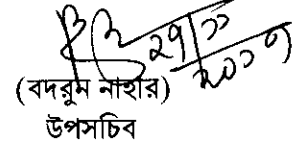 ২৭/১১
২০১৭
(বদরুন নাহার)
উপসচিব